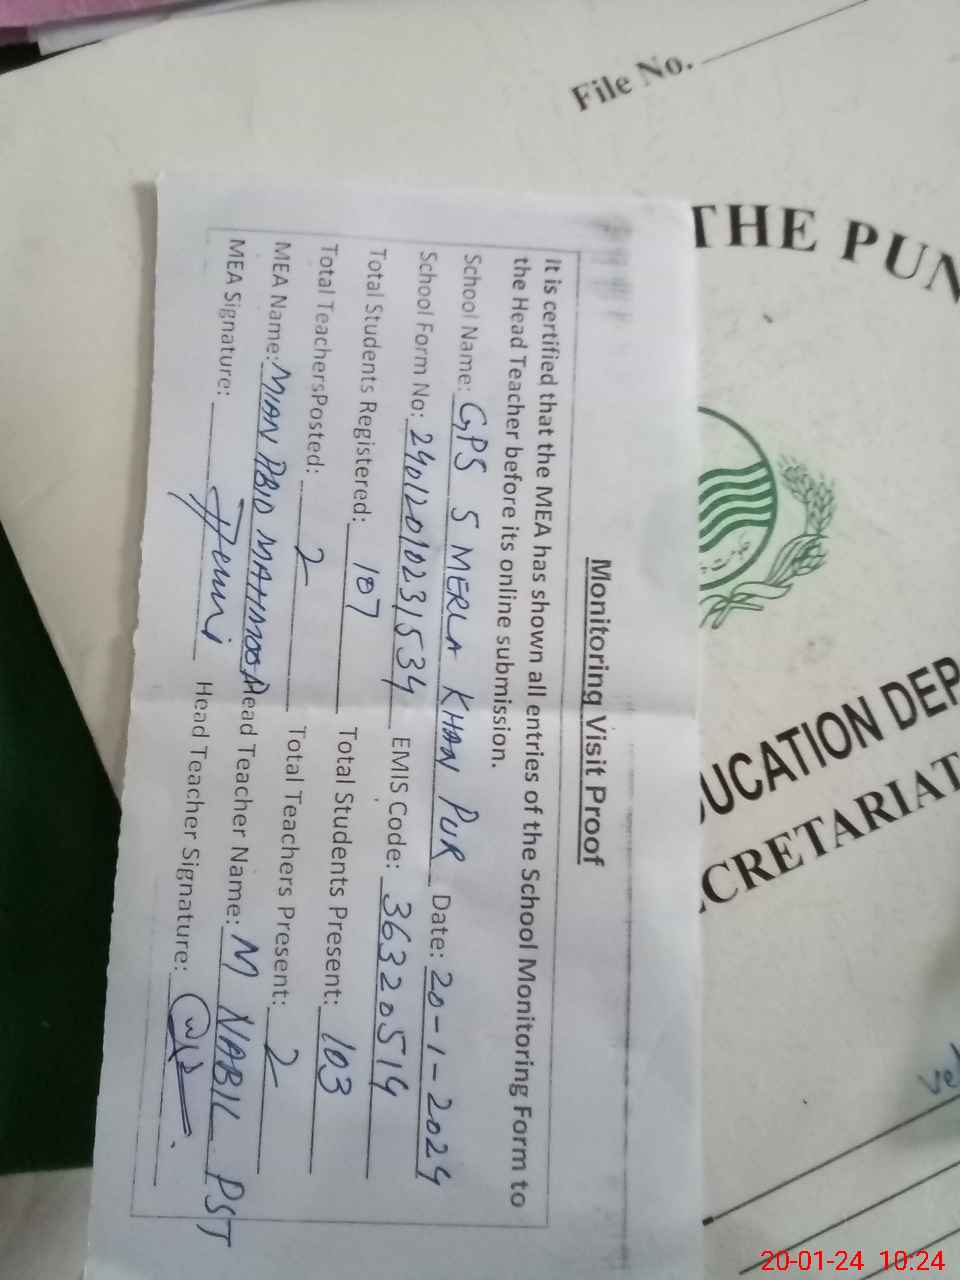 File No.
THE PUN
UCATION DEP
CRETARIAT
Monitoring Visit Proof
It is certified that the MEA has shown all entries of the School Monitoring Form to
the Head Teacher before its online submission.
School Name: GPS 5 MERLA KHAN PUR Date: 20-1-2024
School Form No: 24012010231534 EMIS Code: 36320514
Total Students Registered: 107 Total Students Present: 103
Total TeachersPosted: 2 Total Teachers Present: 2
MEA Name: MIAN MAHMOOD Head Teacher Name: M NABIL PST
MEA Signature: Head Teacher Signature:
20-01-24 10:24